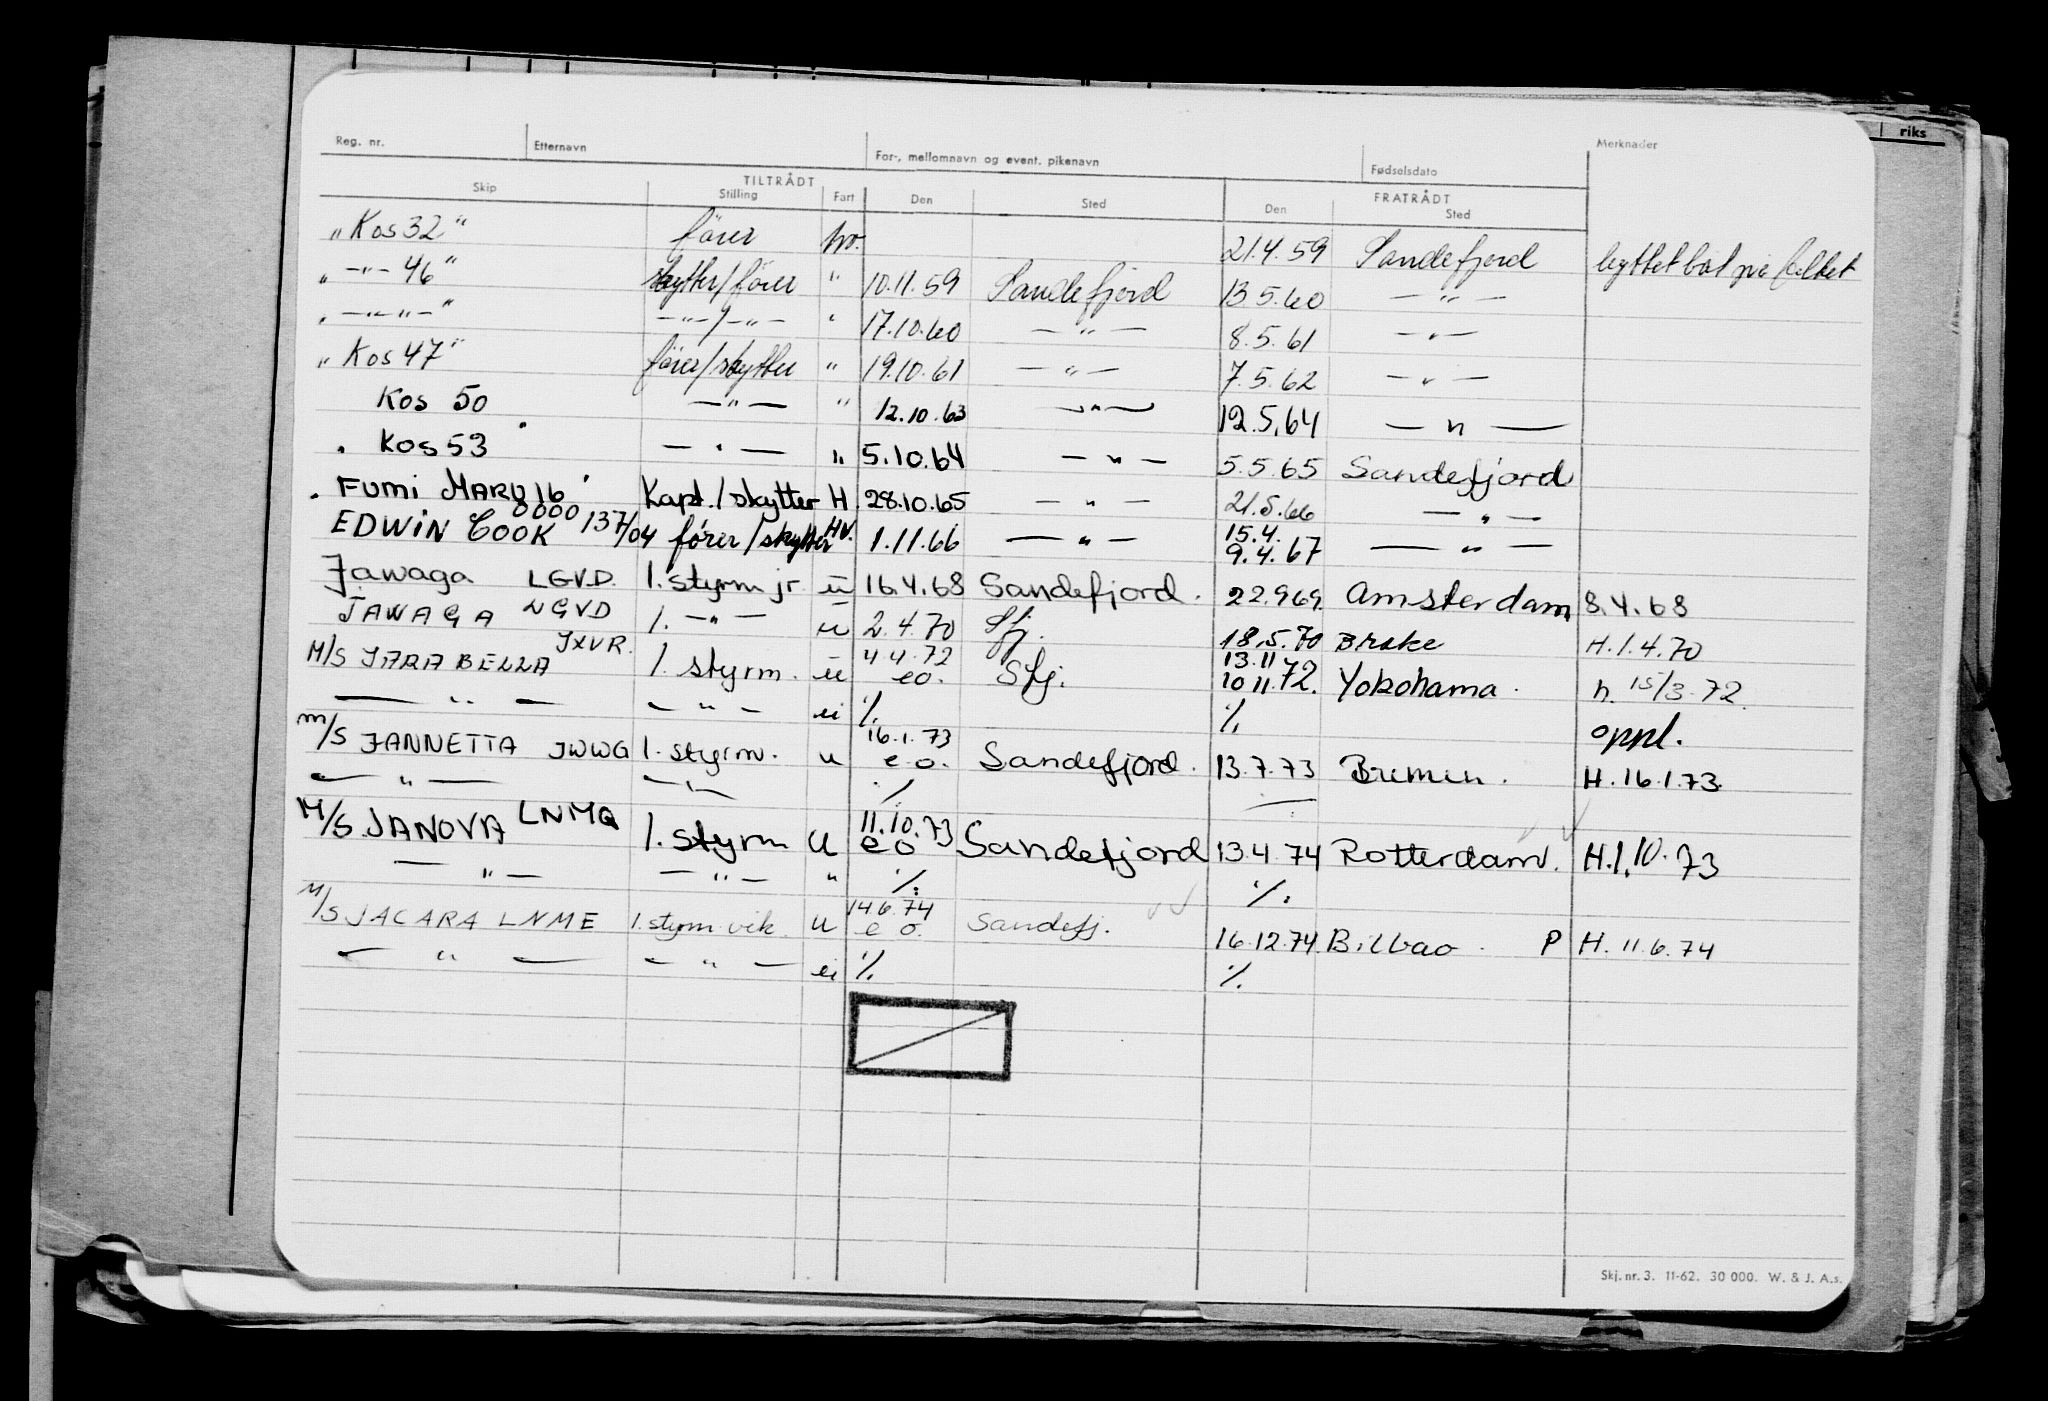 riks
Reg. nr. Etternavn For-, mellomnavn og event. pikenavn Fødselsdato Merknader
TILTRÅDT FRATRÅDT
Skip Stilling Fart Den Sted Den Sted
"Kos 32" fører hv. 21.4.59 Sandefjord byttet båt på feltet
" -"- 46" skytter/fører " 10.11.59 Sandefjord 13.5.60 -"-
" -"-"-" -"-/-"- " 17.10.60 -"- 8.5.61 -"-
"Kos 47" fører/skytter " 19.10.61 -"- 7.5.62 -"-
Kos 50 -"- " 12.10.63 -"- 12.5.64 -"-
" Kos 53 " -"- " 5.10.64 -"- 5.5.65 Sandefjord
" FUMI MARU 16 " Kapt./skytter H 28.10.65 -"- 21.5.66 -"-
EDWIN COOK 0000 137/04 fører/skytter HV. 1.11.66 -"- 15.4. 9.4.67 -"-
Jawaga LGVD. 1. styrm jr u 16.4.68 Sandefjord. 22.9.69. Amsterdam 8.4.68
JAWAGA LGVD 1. -"- u 2.4.70 Sfj. 18.5.70 Brake H.1.4.70
M/S JARABELLA JXVR. 1. styrm. u 4.4.72 eo. Sfj. 13.11 10.11.72. Yokohama. h. 15/3.72.
-"- -"- ei ./. ./. oppl.
m/s JANNETTA JWWG 1. styrm. u 16.1.73 e.o. Sandefjord. 13.7.73 Bremen. H.16.1.73.
-"- -"- ./.
M/S. JANOVA LNMQ 1. styrm u 11.10.73 eo Sandefjord 13.4.74 Rotterdam. H.1.10.73
-"- -"- " ./. ./.
M/S JACARA LNME 1. styrm vik. u 14.6.74 e o. Sandefj. 16.12.74. Bilbao. P H. 11.6.74
-"- -"- ei ./. ./.
Skj. nr. 3. 11-62. 30 000. W. & J. A.s.